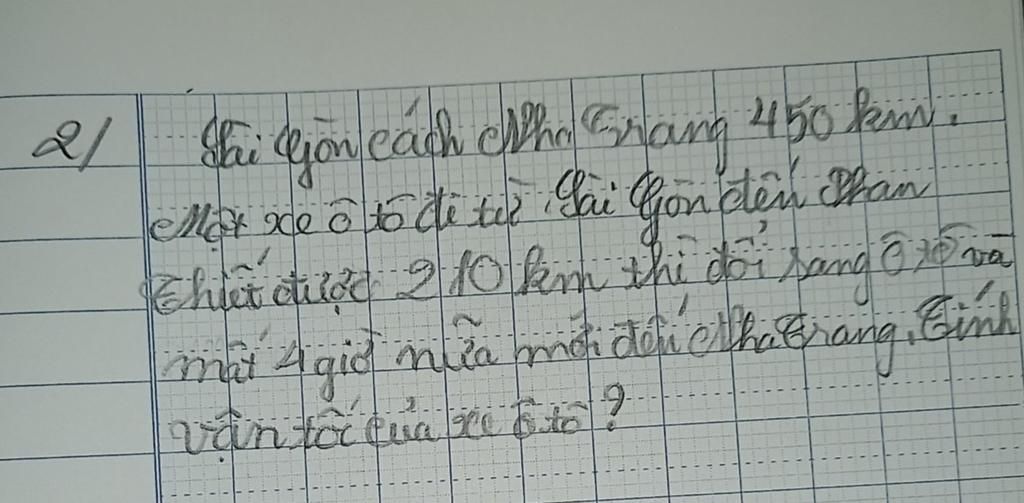 2/ Sài Gòn cách Nha Trang 450 km.
Một xe ô tô đi từ Sài Gòn đến Phan
Thiết được 210 km thì đổi sang ô tô và
mất 4 giờ nữa mới đến Nha Trang. Tính
vận tốc của xe ô tô?